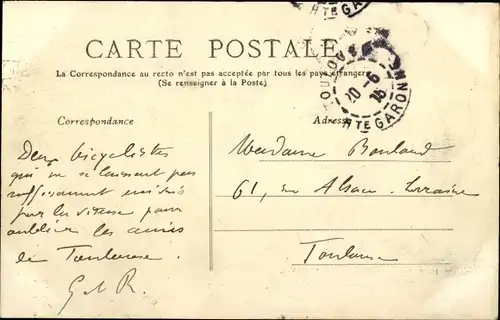 HTE GARONNE
CARTE POSTALE
La Correspondance au recto n'est pas acceptée par tous les pays étrangers
(Se renseigner à la Poste).
TOULOUSE
20-6
HTE GARONNE
Correspondance
Adresse
Deux bicyclistes
qui ne se laissent pas
suffisamment
par la vitesse pour
oublier les amis
de Toulouse.
G
R.
Madame Bouland
61, rue Alsace-Lorraine
Toulouse